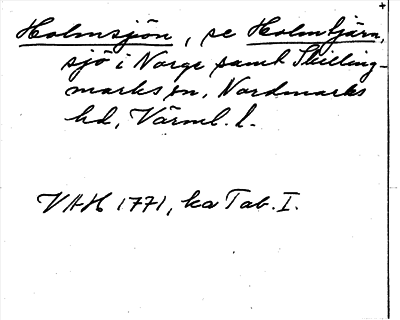 Holmsjön, se Holmtjärn,
sjö i Norge samt Skilling-
marks sn, Nordmarks
hd, Värml. l.
VAH 1771, ka Tab. I.